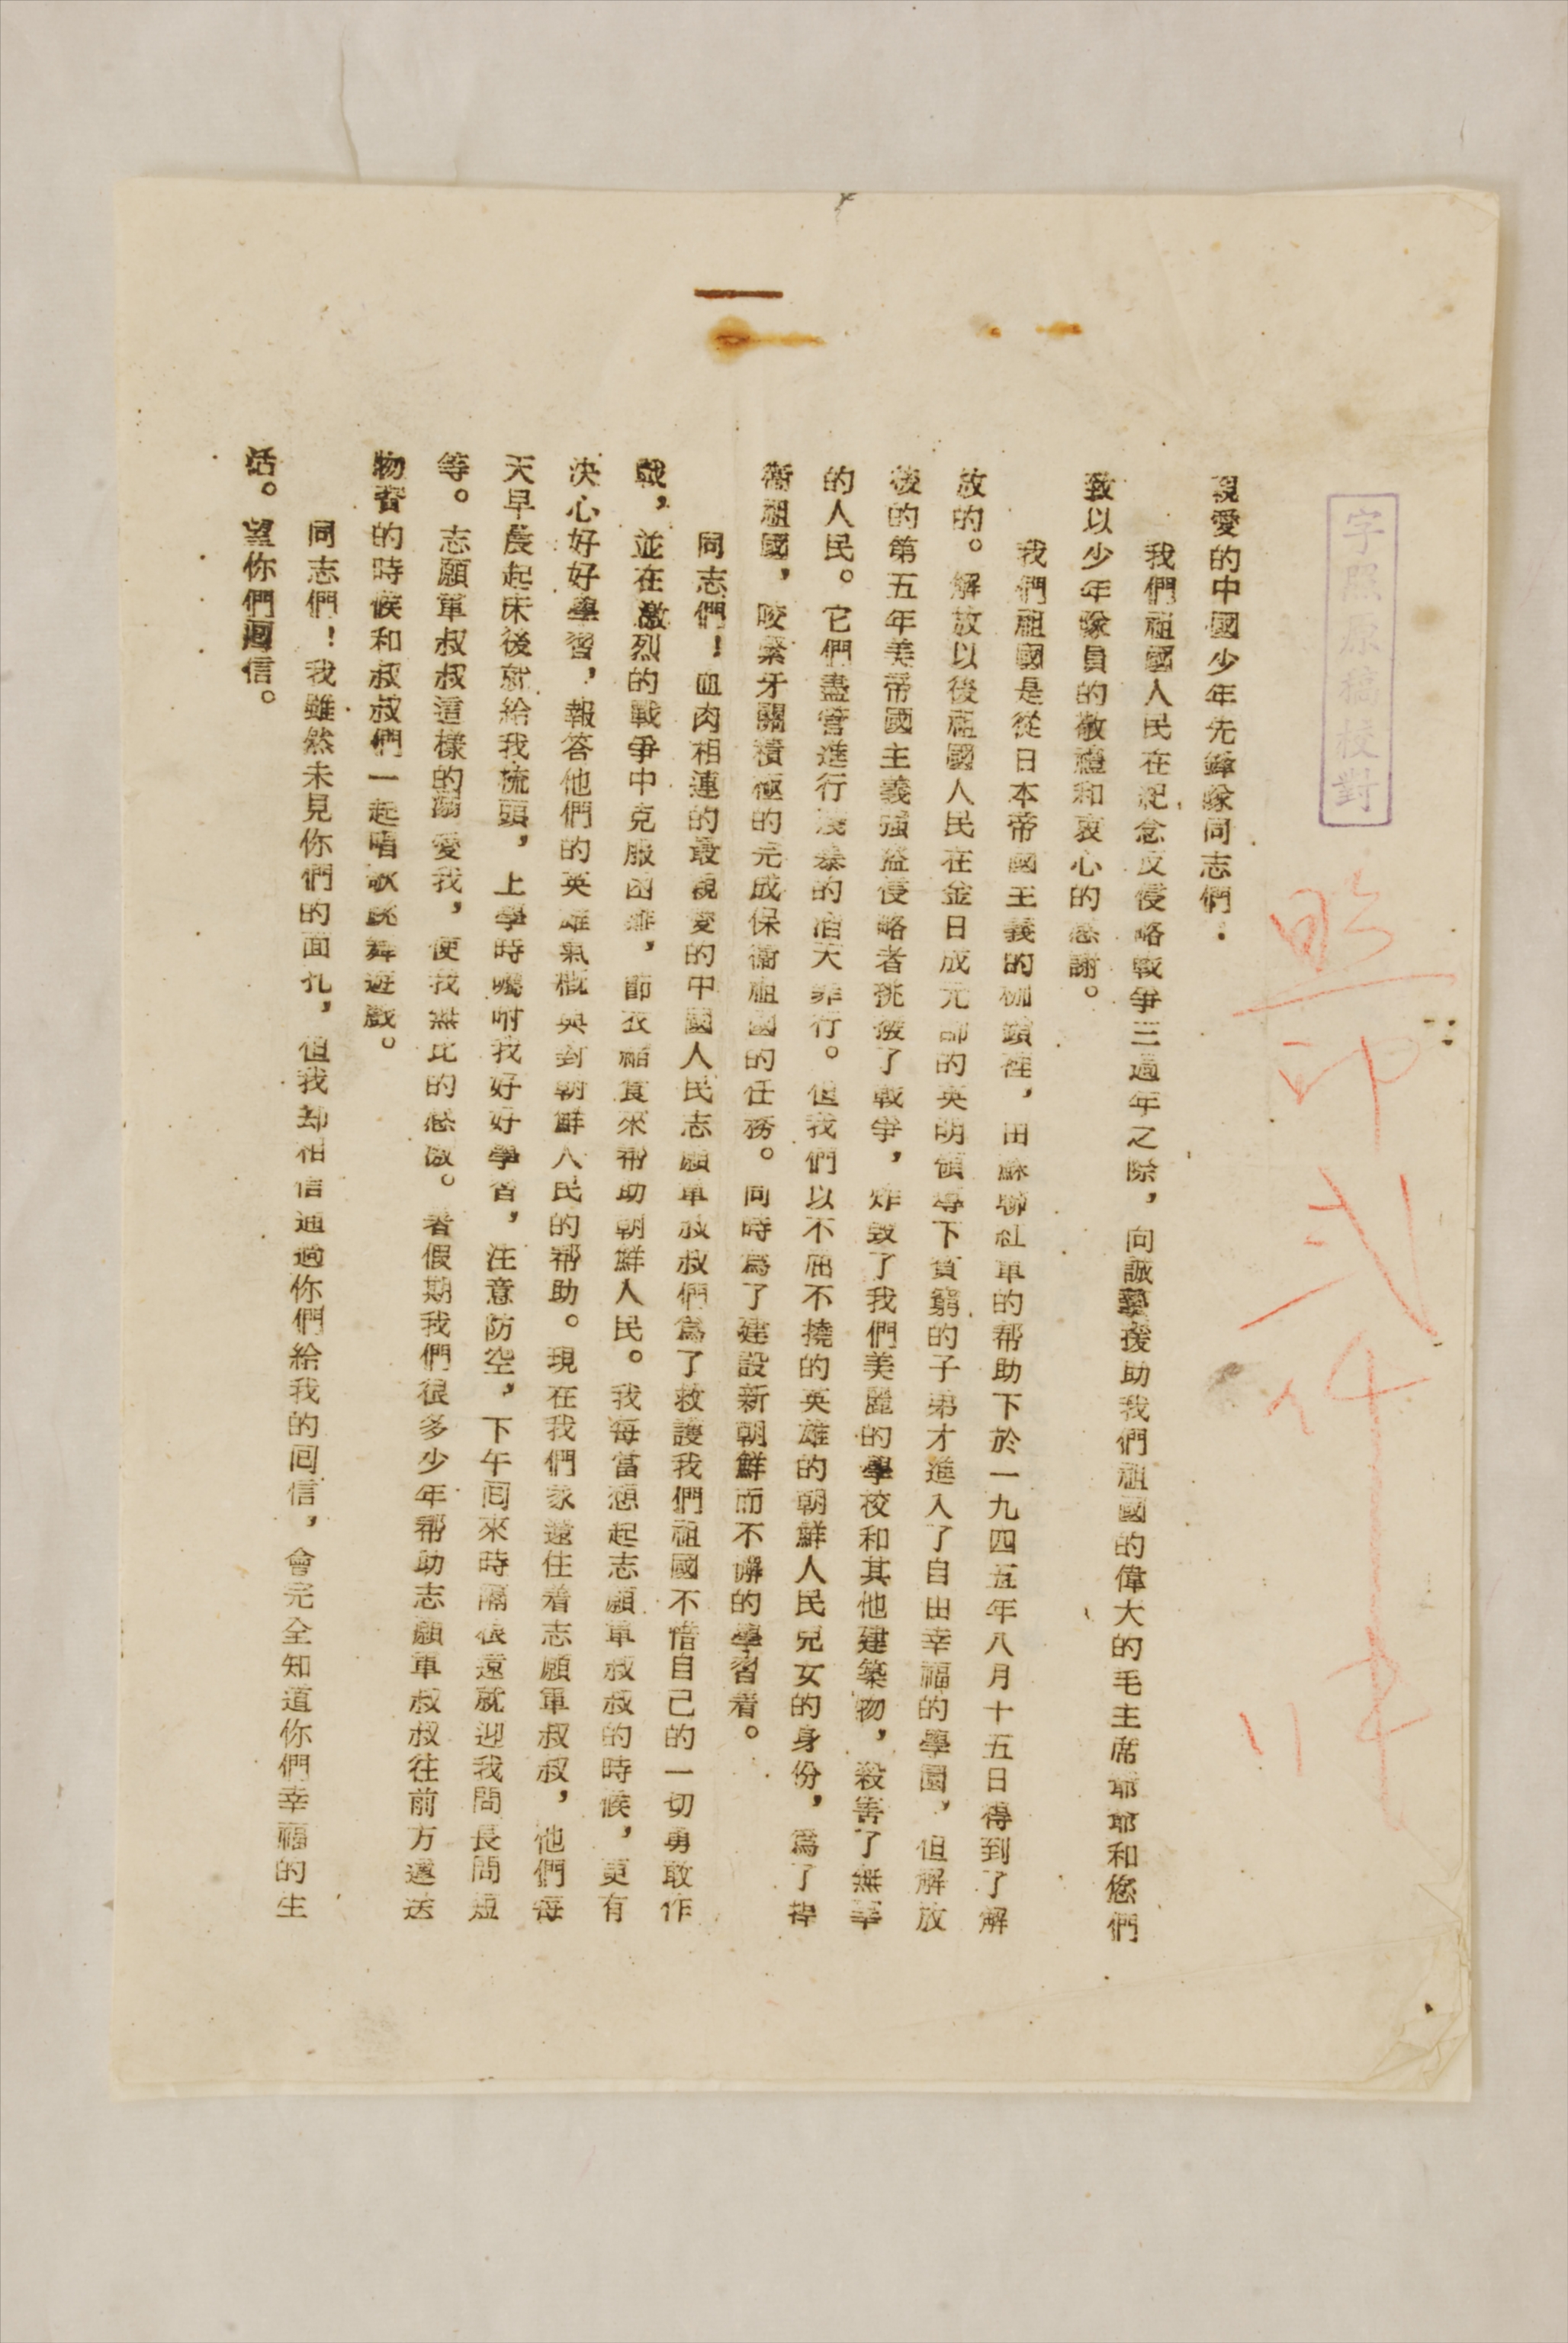 字照原稿校對
親愛的中國少年先鋒隊同志們:
我們祖國人民在紀念反侵略戰爭三週年之際,向誠摯援助我們祖國的偉大的毛主席爺爺和您們
致以少年隊員的敬禮和衷心的感謝。
我們祖國是從日本帝國主義的枷鎖裡,由蘇聯紅軍的帮助下於一九四五年八月十五日得到了解
放的。解放以後祖國人民在金日成元帥的英明領導下貧窮的子弟才進入了自由幸福的學園,但解放
後的第五年美帝國主義强盜侵略者挑撥了戰爭,炸毀了我們美麗的學校和其他建築物,殺害了無辜
的人民。它們儘管進行殘暴的滔天罪行。但我們以不屈不撓的英雄的朝鮮人民兒女的身份,爲了捍
衛祖國,咬緊牙關積極的完成保衞祖國的任務。同時爲了建設新朝鮮而不懈的學習着。
同志們!血肉相連的最親愛的中國人民志願軍叔叔們爲了救護我們祖國不惜自己的一切勇敢作
戰,並在激烈的戰爭中克服困難,節衣縮食來帮助朝鮮人民。我每當想起志願軍叔叔的時候,更有
决心好好學習,報答他們的英雄氣概與對朝鮮人民的帮助。現在我們家還住着志願軍叔叔,他們每
天早晨起床後就給我梳頭,上學時囑咐我好好學習,注意防空,下午囘來時隔很遠就迎我問長問短
等。志願軍叔叔這樣的溺愛我,使我無比的感激。暑假期我們很多少年帮助志願軍叔叔往前方運送
物資的時候和叔叔們一起唱歌跳舞遊戲。
同志們!我雖然未見你們的面孔,但我却相信通過你們給我的囘信,會完全知道你們幸福的生
活。望你們囘信。